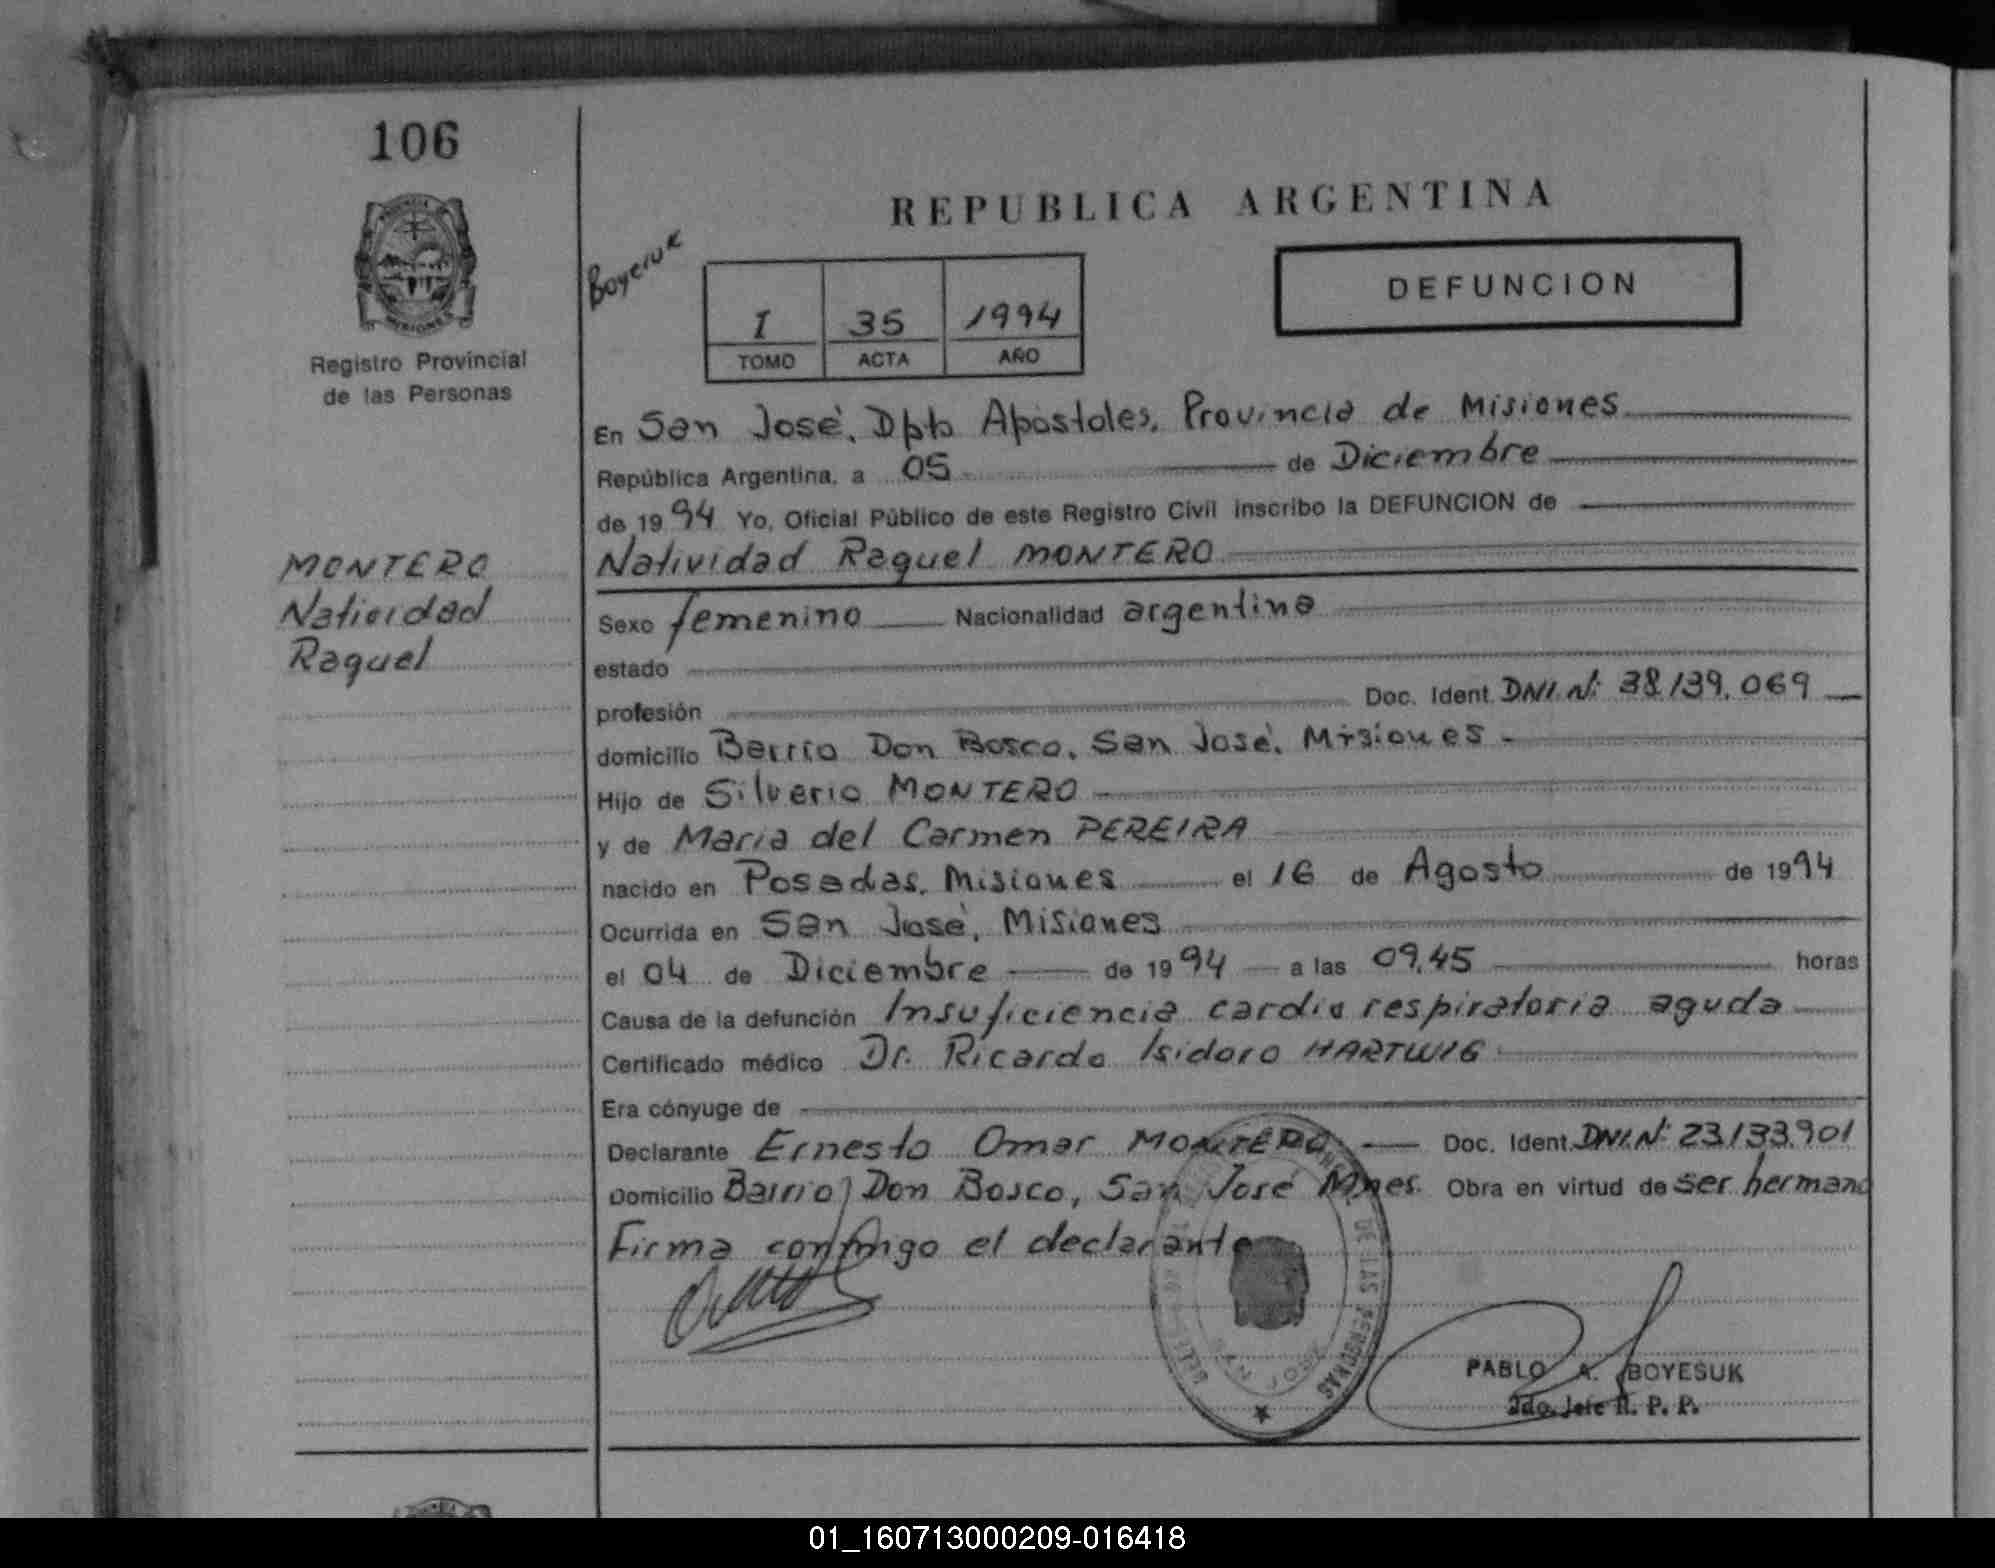 106
REPUBLICA ARGENTINA
DEFUNCION
I 35 1994
TOMO ACTA AÑO
Registro Provincial
de las Personas
En San José, Dpto Apóstoles, Provincia de Misiones
República Argentina, a 05 de Diciembre
de 1994 Yo, Oficial Público de este Registro Civil inscribo la DEFUNCION de
MONTERO
Natividad
Raquel
Natividad Raquel MONTERO
Sexo femenino Nacionalidad argentina
estado
profesión Doc. Ident. DNI. Nº: 38.139.069
domicilio Barrio Don Bosco, San José, Misiones -
Hijo de Silverio MONTERO
y de María del Carmen PEREIRA
nacido en Posadas, Misiones el 16 de Agosto de 1994
Ocurrida en San José, Misiones
el 04 de Diciembre de 1994 a las 09,45 horas
Causa de la defunción Insuficiencia cardio respiratoria aguda
Certificado médico Dr. Ricardo Isidoro HARTWIG
Era cónyuge de
Declarante Ernesto Omar MONTERO Doc. Ident. DNI. Nº: 23.133.901
Domicilio Barrio Don Bosco, San José Mnes. Obra en virtud de ser hermano
Firma conmigo el declarante
DE LAS PERSONAS
SAN JOSE
PABLO A. BOYESUK
2do. Jefe R. P. P.
01_160713000209-016418